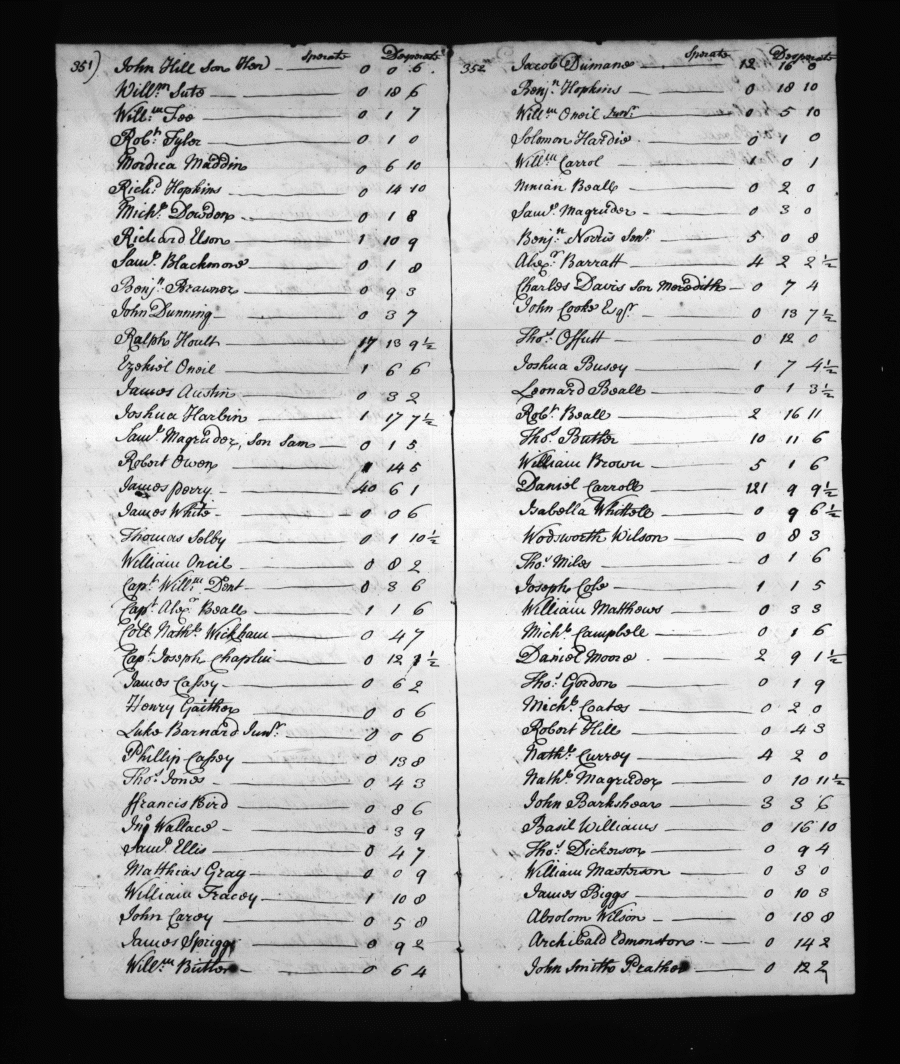 351) Sperate Desperate
John Hill Son Hen 0 0 6
Will.m Sute 0 18 6
Will.m Fee 0 1 7
Rob.t Tyler 0 1 0
Mordica Maddin 0 6 10
Rich.d Hopkins 0 14 10
Mich.l Dowden 0 1 8
Richard Elson 1 10 9
Sam.l Blackmore 0 1 8
Benj.n Brawner 0 9 3
John Dunning 0 3 7
Ralph Hoult 17 13 9 ½
Ezekiel Oneil 1 6 6
James Austin 0 3 2
Joshua Harbin 1 17 7 ½
Sam.l Magruder, son Sam 0 1 5
Robert Owen 1 14 5
James Perry 40 6 1
James White 0 0 6
Thomas Selby 0 1 10 ½
William Oneil 0 8 2
Cap.t Will.m Dent 0 3 6
Cap.t Alex.r Beall 1 1 6
Coll Nath.l Wickham 0 4 7
Cap.t Joseph Chaplin 0 12 1 ½
James Casey 0 6 2
Henry Gaither 0 0 6
Luke Barnard Jun.r 0 0 6
Phillip Casey 0 13 8
Tho.s Jones 0 4 3
ffrancis Bird 0 8 6
Jno Wallace 0 3 9
Sam.l Ellis 0 4 7
Matthias Gray 0 0 9
William Tracey 1 10 8
John Carey 0 5 8
James Sprigg 0 9 2
Will.m Butler 0 6 4
352 Sperate Desperate
Jacob Dumane 12 16 0
Benj.n Hopkins 0 18 10
Will.m Oneil Jun.r 0 5 10
Solomon Hardie 0 1 0
Will.m Carrol 1 0 1
Ninian Beall 0 2 0
Sam.l Magruder 0 3 0
Benj.n Norris Sen.r 5 0 8
Alex.r Barratt 4 2 2 ½
Charles Davis son Meredith 0 7 4
John Cooke Esq.r 0 13 7 ½
Tho.s Offutt 0 12 0
Joshua Busey 1 7 4 ½
Leonard Beall 0 1 3 ½
Rob.t Beall 2 16 11
Tho.s Butler 10 11 6
William Brown 5 1 6
Daniel Carroll 121 9 9 ½
Isabella Whittell 0 9 6 ½
Wodsworth Wilson 0 8 3
Tho.s Miles 0 1 6
Joseph Cole 1 1 5
William Matthews 0 3 3
Mich.l Campbell 0 1 6
Daniel Moore 2 9 1 ½
Tho.s Gordon 0 1 9
Mich.l Coates 0 2 0
Robert Hill 0 4 3
Nath.l Currey 4 2 0
Nath.l Magruder 0 10 11 ½
John Barkshear 3 3 6
Basil Williams 0 16 10
Tho.s Dickerson 0 9 4
William Masterson 0 3 0
James Biggs 0 10 3
Absolom Wilson 0 18 8
Archibald Edmonston 0 14 2
John Smith Prather 0 12 2